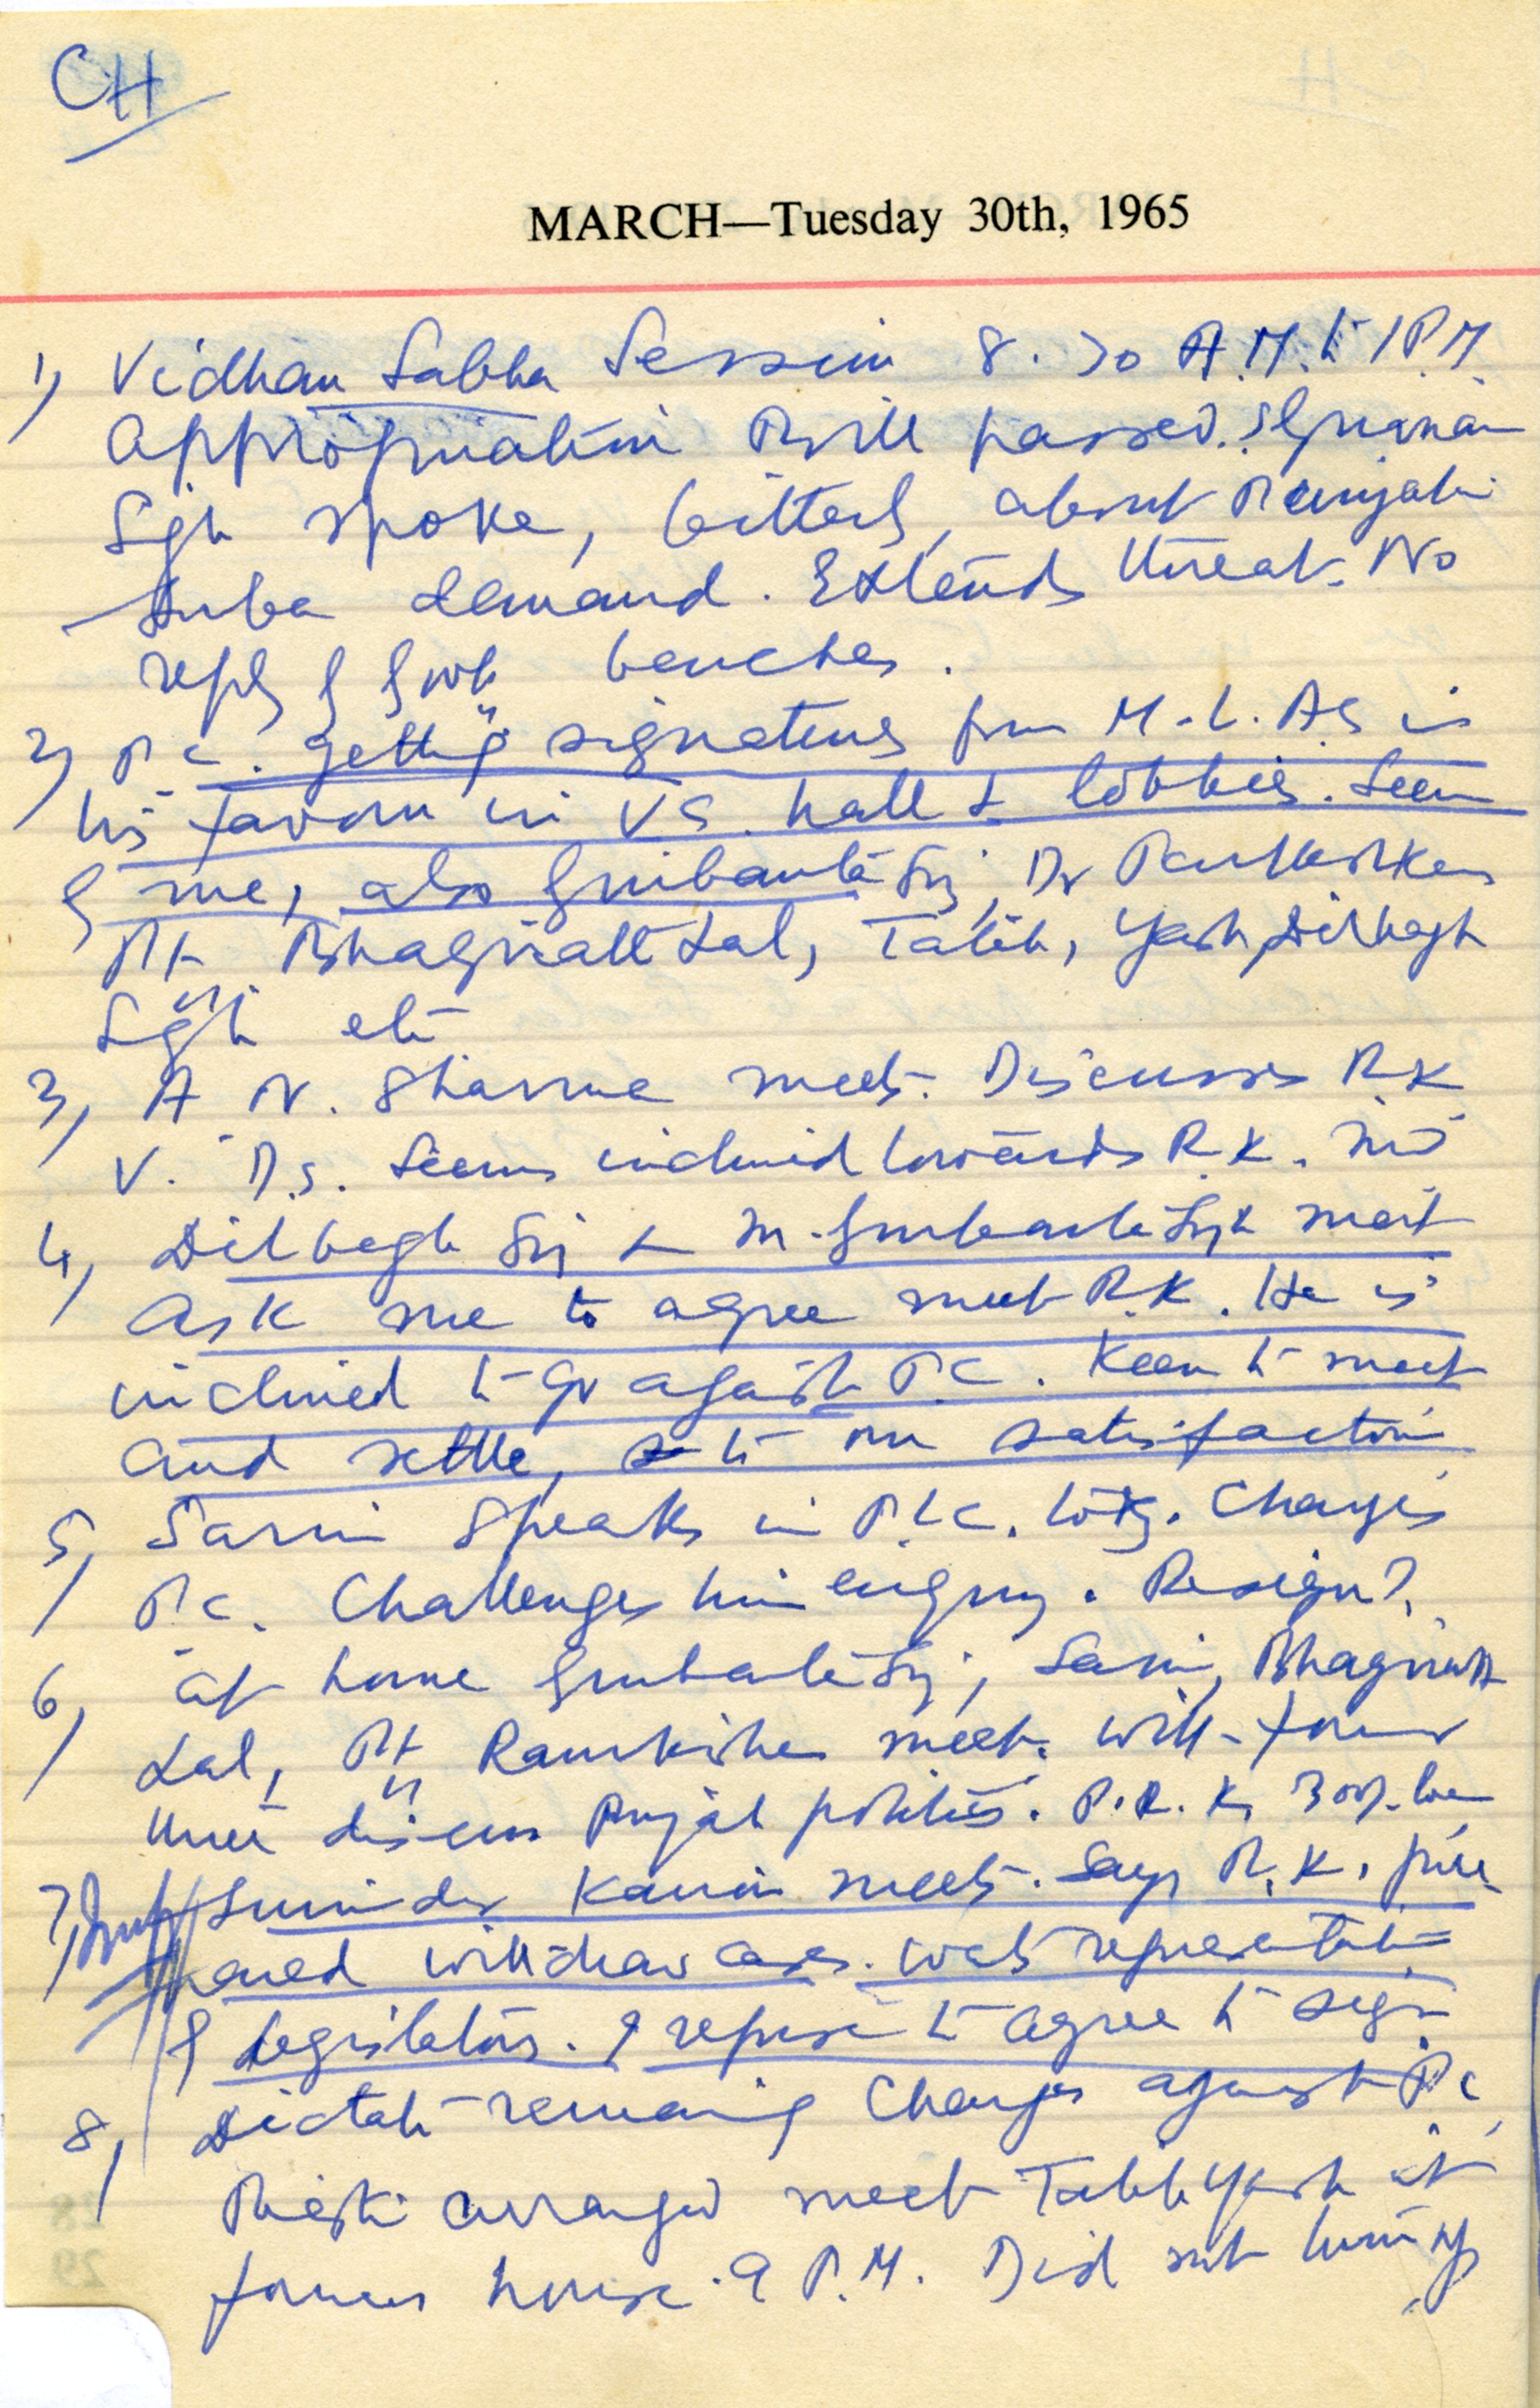 CH
MARCH—Tuesday 30th, 1965
1) Vidhan Sabha Session 8.30 A.M. to 1 P.M.
Appropriation Bill passed. S. Gurnam
Sgh spoke, bitterly, about Punjabi
Suba demand. Extends threat. No
reply by Govt benches.
2) P.C. getting signatures from M.L.As in
his favour in V.S. hall & lobbies. Seen
by me, also Gurbanta Sg, Dr
Pt Bhagirath Lal, Talib, Yash, Dilbagh
Sgh etc
3, A. N. Sharma meets. Discusses R.K
V. D.S. Seems inclined towards R.K.
4, Dilbagh Sg & M. Gurbanta Sgh meet
Ask me to agree meet R.K. He is
inclined to go against P.C. Keen to meet
and settle, to our satisfaction
5, Sarin speaks in Charges
P.C. Challenges him enquiry. Resign?
6, at home Gurbanta Sg, Sarin, Bhagirath
Lal, Pt Ramkishen meet. will former
three discuss Punjab politics. P.R.K.
7, Surinder Kairon meets. Says R.K. pre-
pared withdraw cases. wants representation
by legislators. I refuse to agree to sign
8, Dictate remaining Charges against P.C
arranged meet Talib Yash at
former house. 9 P.M. Did not turn up
28
29